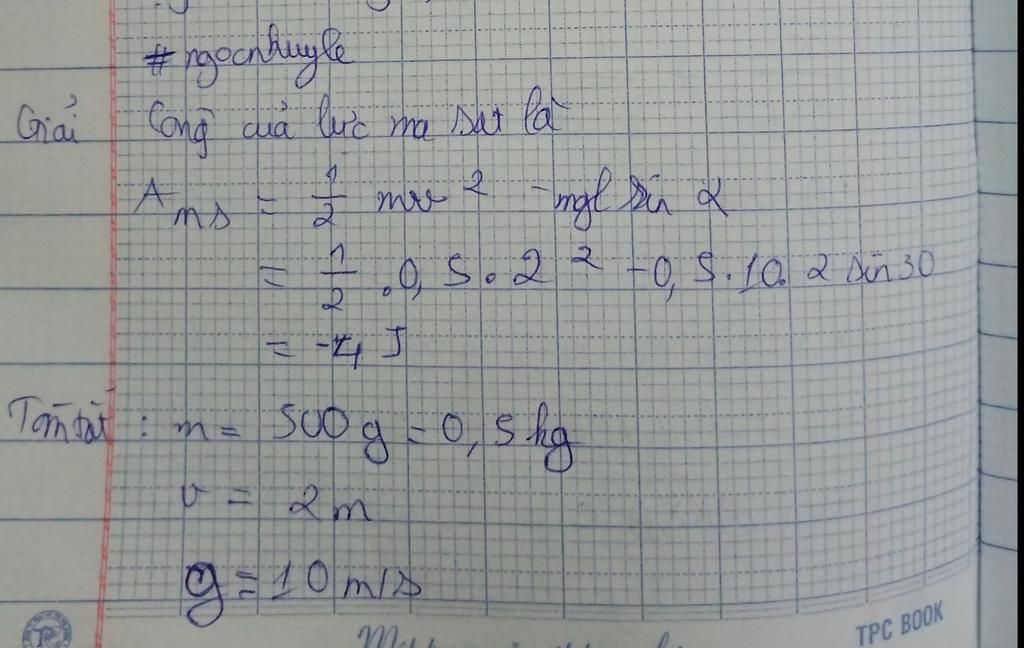 # ngocnhuyle
Giải Công của lực ma sát là
A ms = 1/2 mv² - mgl sin α
= 1/2 . 0,5 . 2² - 0,5 . 10 . 2 sin 30
= -4 J
Tóm tắt : m = 500 g = 0,5 kg
v = 2 m
g = 10 m/s
TPC BOOK